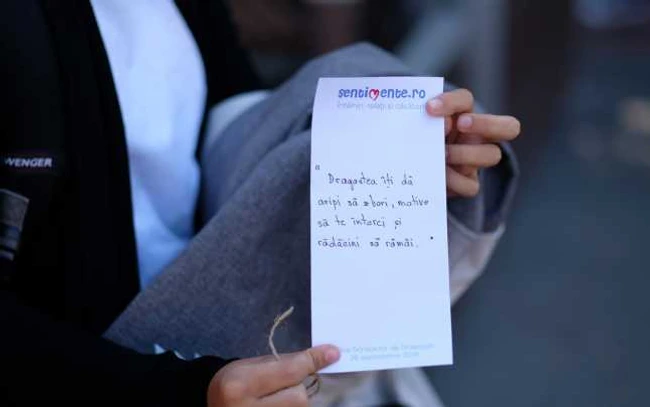 WENGER
sentimente.ro
"
Dragostea îți dă
aripi să zbori, motive
să te întorci și
rădăcini să rămâi. "